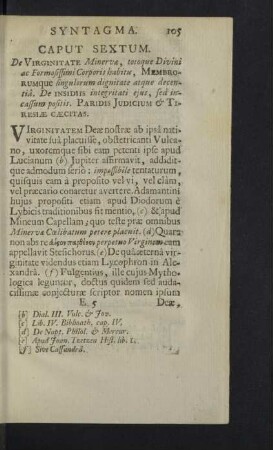 SYNTAGMA. 105
CAPUT SEXTUM.
De VIRGINITATE Minervæ, totoque Divini
ac Formosissimi Corporis habitu, MEMBRO-
RUMque singulorum dignitate atque decen-
tiâ. De INSIDIIS integritati ejus, sed in-
cassum positis. PARIDIS JUDICIUM & TI-
RESIÆ CÆCITAS.
VIRGINITATEM Deæ nostræ ab ipsâ nati-
vitate suâ placuisse, obstetricanti Vulca-
no, uxoremque sibi eam petenti ipse apud
Lucianum (b) Jupiter affirmavit, addidit-
que admodum seriò : impossibile tentaturum,
quisquis eam à proposito vel vi, vel clàm,
vel præcario conaretur avertere. Adamantini
hujus propositi etiam apud Diodorum è
Lybicis traditionibus fit mentio, (c) & apud
Miccum Capellam, quo teste præ omnibus
Minerva Cælibatum petere placuit. (d) Quare
non abs re perpetuo Virginem eam
appellavit Stesichorus. (e) De quâ æternâ vir-
ginitate videndus etiam Lycophron in Ale-
xandrâ. (f) Fulgentius, ille cujus Mytho-
logica leguntur, doctus quidem sed auda-
cissimæ conjecturæ scriptor nomen ipsum
E 5 Deæ,
[b] Dial. III. Vulc. & Jov.
[c] Lib. IV. Biblioth. cap. IV.
[d] De Nupt. Philol. & Mercur.
[e] Apud Joan. Tzetzen Hist. lib. 1.
[f] Sive Cassandrâ.